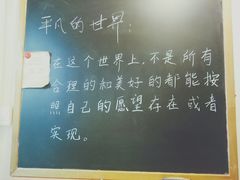 平凡的世界:
在这个世界上,不是所有
合理的和美好的都能按
照自己的愿望存在或者
实现。